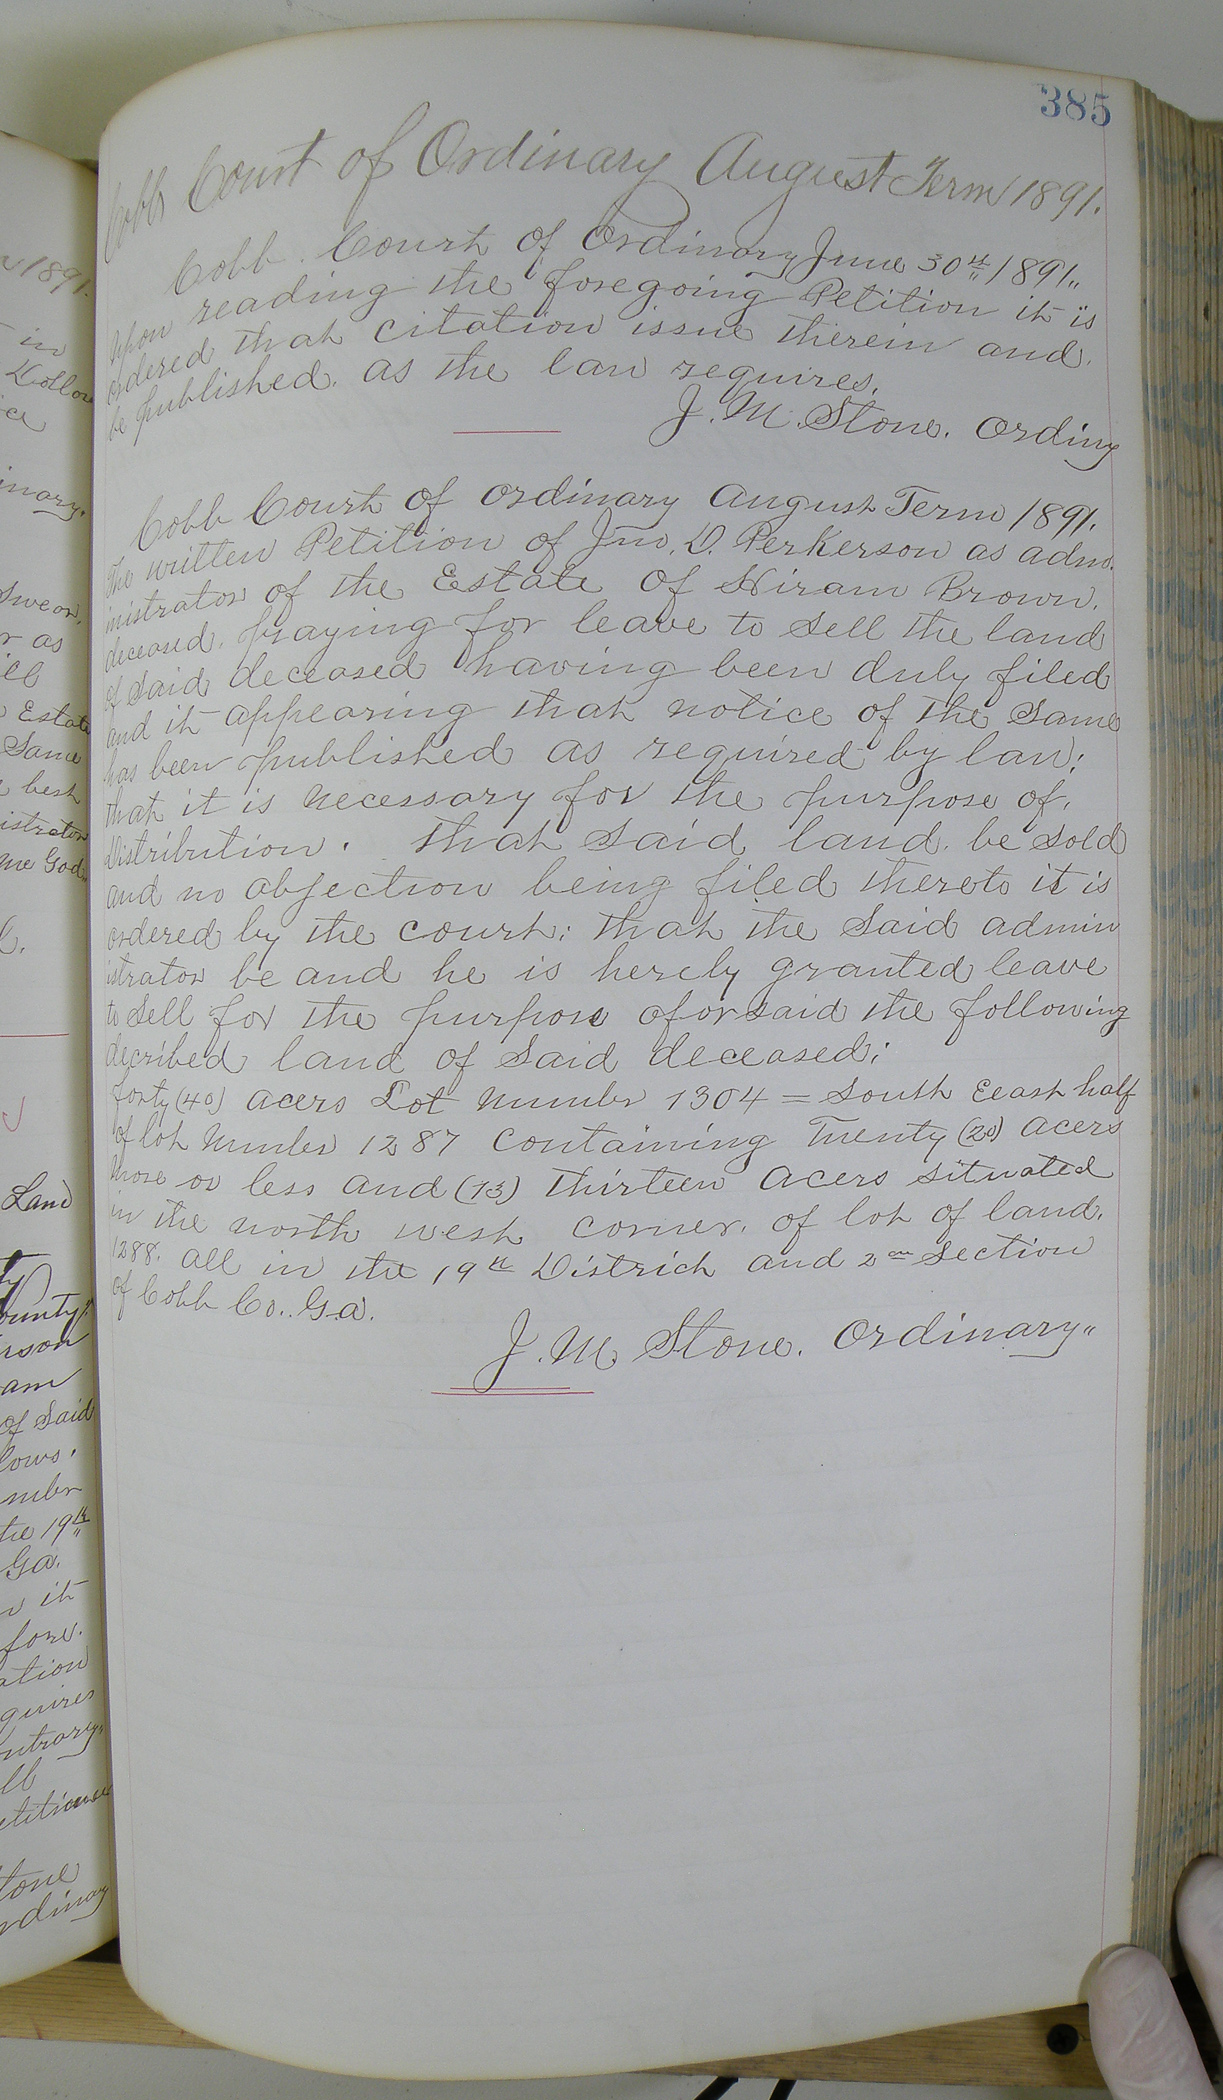 385
Cobb Court of Ordinary August Term 1891.
Cobb Court of Ordinary June 30th 1891.
Upon reading the foregoing Petition it is
ordered that citation issue therein and
be published as the law requires.
J. M. Stone. Ordiny
Cobb Court of ordinary August Term 1891.
The written Petition of Jno. D. Perkerson as adm
inistrator of the Estate of Hiram Brown.
deceased, praying for leave to sell the land
of said deceased having been duly filed
and it appearing that notice of the same
has been published as required by law;
that it is necessary for the purpose of
distribution. that said land be sold
and no objection being filed thereto it is
ordered by the court: that the said admin
istrator be and he is hereby granted leave
to sell for the purpose aforsaid the following
decribed land of said deceased;
forty (40) acers Lot number 1304 = South Eeast half
of lot number 1287 containing Twenty (20) acers
more or less and (13) thirteen acers situated
in the north west corner. of lot of land.
1288. all in the 19th District and 2nd Section
of Cobb Co. Ga.
J. M. Stone. Ordinary"
1891.
in
ice
inary.
Swear,
r as
Estate
Same
best
istrator
me God
Land
ounty
rson
am
of Said
lows.
mber
the 19th
Ga.
it
fore.
ation
quires
ll
etitioner
tone
rdinary